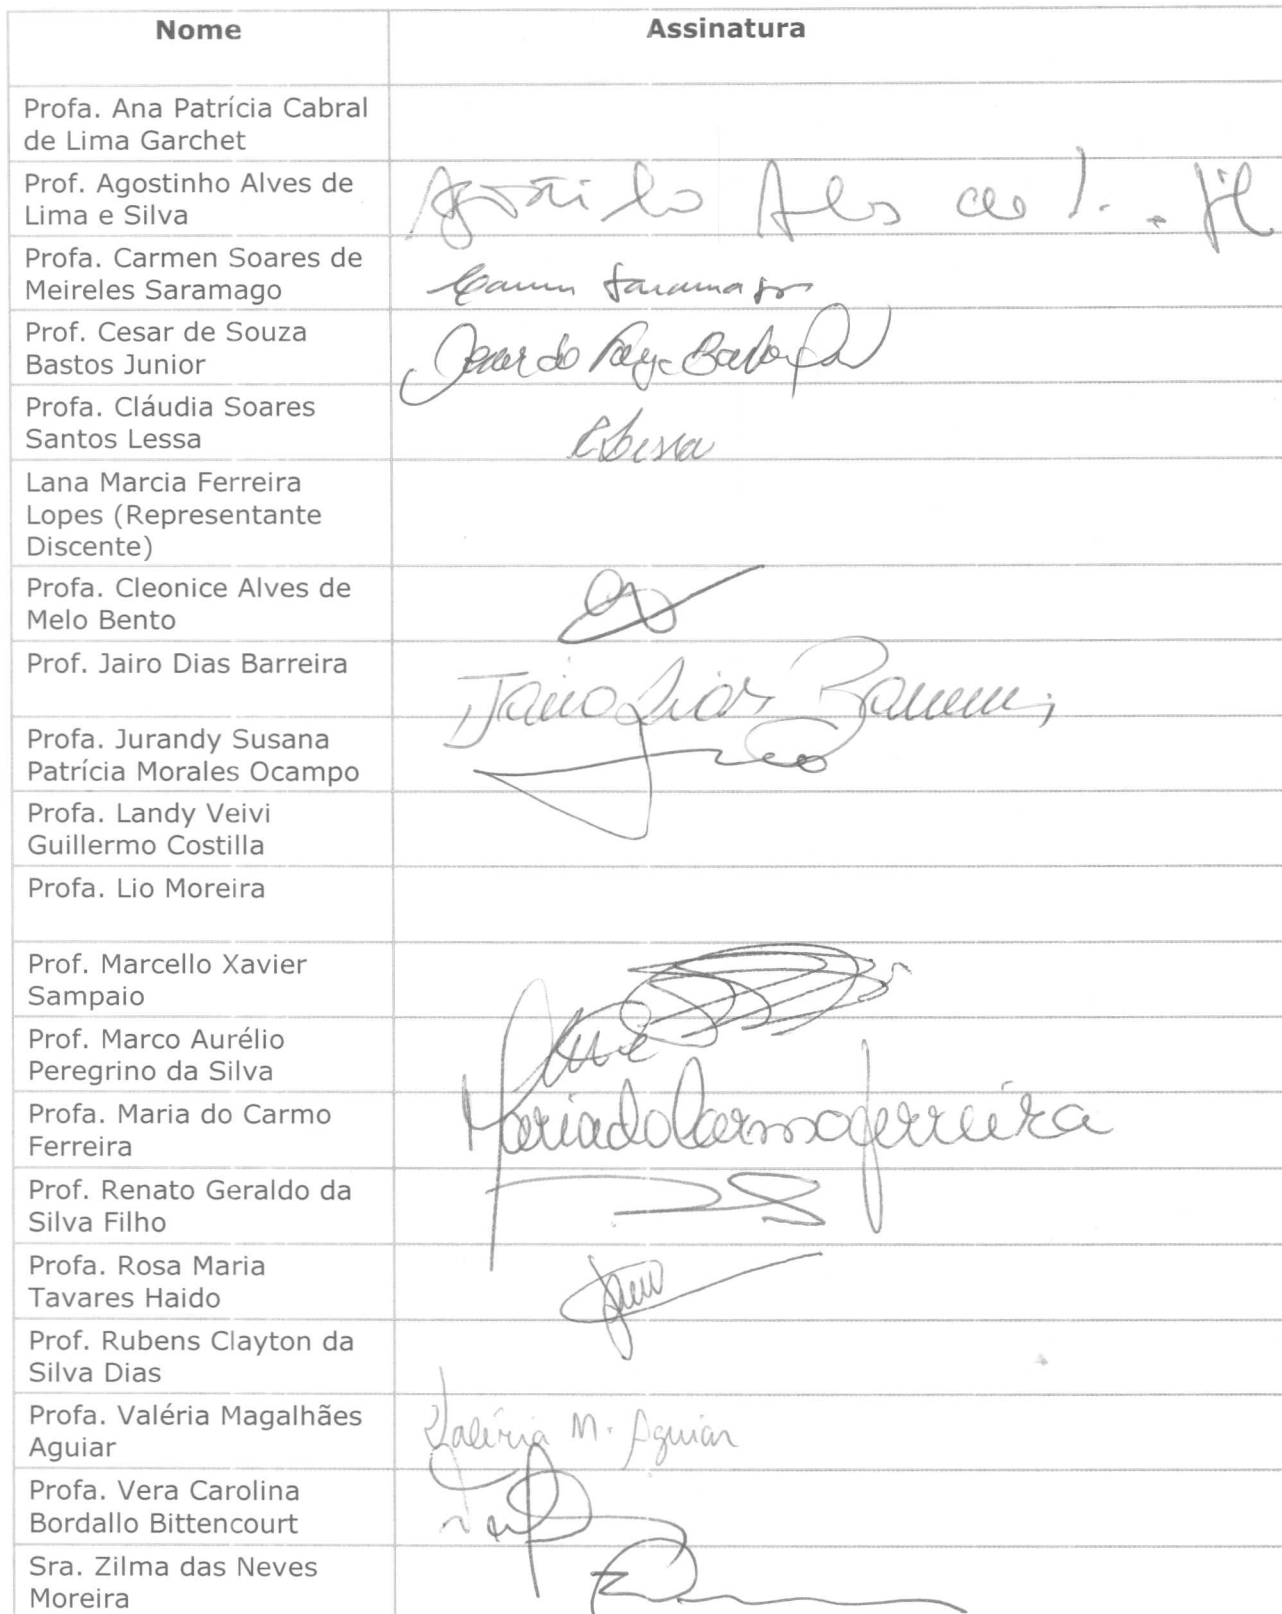 Nome Assinatura
Profa. Ana Patrícia Cabral
de Lima Garchet
Prof. Agostinho Alves de
Lima e Silva
Profa. Carmen Soares de
Meireles Saramago
Carmen Saramago
Prof. Cesar de Souza
Bastos Junior
Profa. Cláudia Soares
Santos Lessa
CLessa
Lana Marcia Ferreira
Lopes (Representante
Discente)
Profa. Cleonice Alves de
Melo Bento
Prof. Jairo Dias Barreira
Jairo Dias Barreira
Profa. Jurandy Susana
Patrícia Morales Ocampo
Profa. Landy Veivi
Guillermo Costilla
Profa. Lio Moreira
Prof. Marcello Xavier
Sampaio
Prof. Marco Aurélio
Peregrino da Silva
Profa. Maria do Carmo
Ferreira
Maria do Carmo Ferreira
Prof. Renato Geraldo da
Silva Filho
Profa. Rosa Maria
Tavares Haido
Prof. Rubens Clayton da
Silva Dias
Profa. Valéria Magalhães
Aguiar
Valéria M. Aguiar
Profa. Vera Carolina
Bordallo Bittencourt
Sra. Zilma das Neves
Moreira